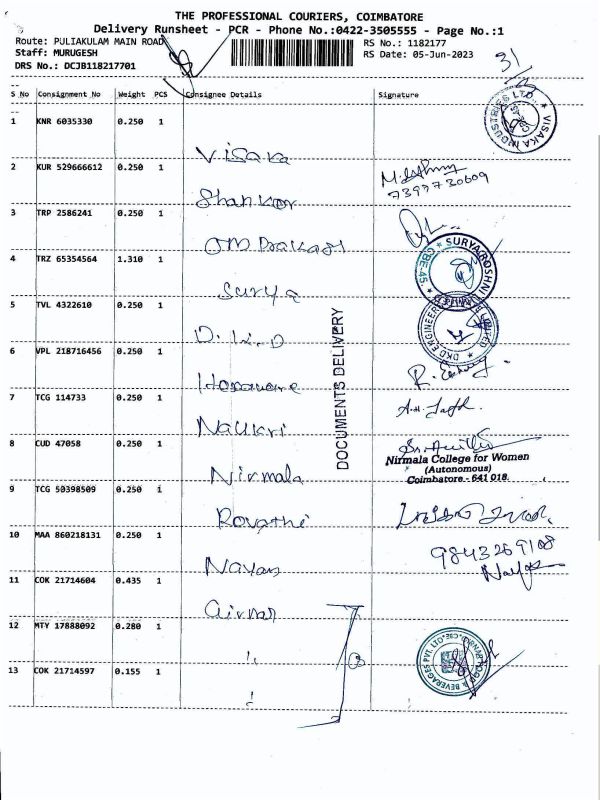 THE PROFESSIONAL COURIERS, COIMBATORE
Delivery Runsheet - PCR - Phone No.:0422-3505555 - Page No.:1
Route: PULIAKULAM MAIN ROAD
RS No.: 1182177
Staff: MURUGESH
RS Date: 05-Jun-2023
DRS No.: DCJB118217701
31/
S No Consignment No Weight PCS Consignee Details Signature
1 KNR 6035330 0.250 1 Visaka
VISAKA INDUSTRIES LTD.
2 KUR 529666612 0.250 1 Shankar
7397730609
3 TRP 2586241 0.250 1 OM Prakash
4 TRZ 65354564 1.310 1 Surya
SURYA ROSHNI CBE-45.
5 TVL 4322610 0.250 1 D.K.D
DKD ENGINEERS LIMITED
6 VPL 218716456 0.250 1
7 TCG 114733 0.250 1 Naukri
8 CUD 47058 0.250 1 Nirmala
Nirmala College for Women
(Autonomous)
Coimbatore - 641 018.
9 TCG 50398509 0.250 1 Rovathi
10 MAA 860218131 0.250 1 Nayan
9843269108
11 COK 21714604 0.435 1
12 MTY 17888092 0.280 1 "
13 COK 21714597 0.155 1 "
& BEVERAGES PVT. LTD
DOCUMENTS DELIVERY